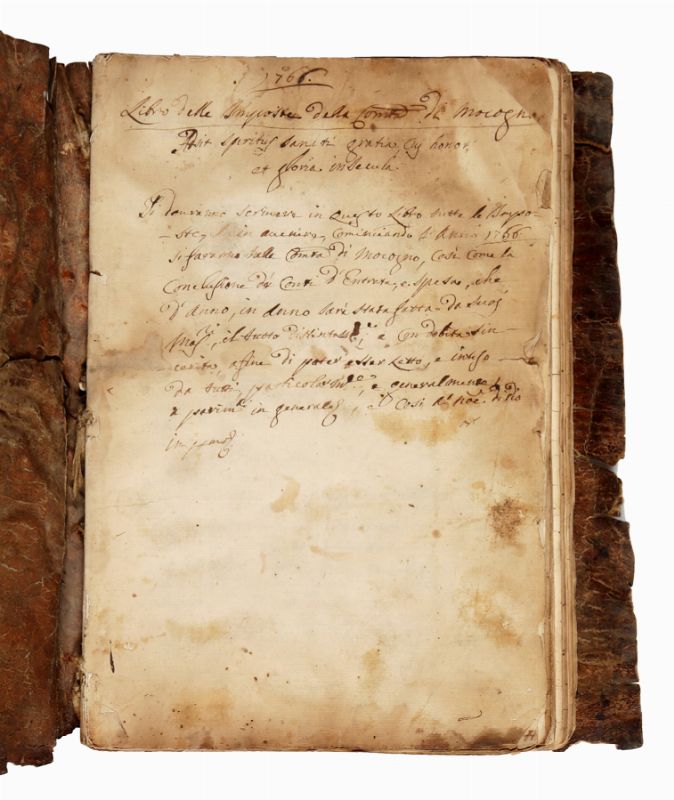 1766.
Libro delle Imposte della Comtà di Mocogno
Asit Spiritus Sancti gratia, honor,
et gloria in secula.
Si dovranno scrivere in questo Libro tutte le Impo-
ste, in avenire, cominciando l'Anno 1766
si faranno dalla Comtà di Mocogno, così come la
Conclusione di Conti d'Entrata, e spesa, che
d'Anno, in Anno sarà stata fatta da suoi
il tutto distintamte, e con debita sin-
cerità, afine di poter esser letto, e inteso
da tutti, particolarmte, e generalmente
in generale, e così al noe. di Dio